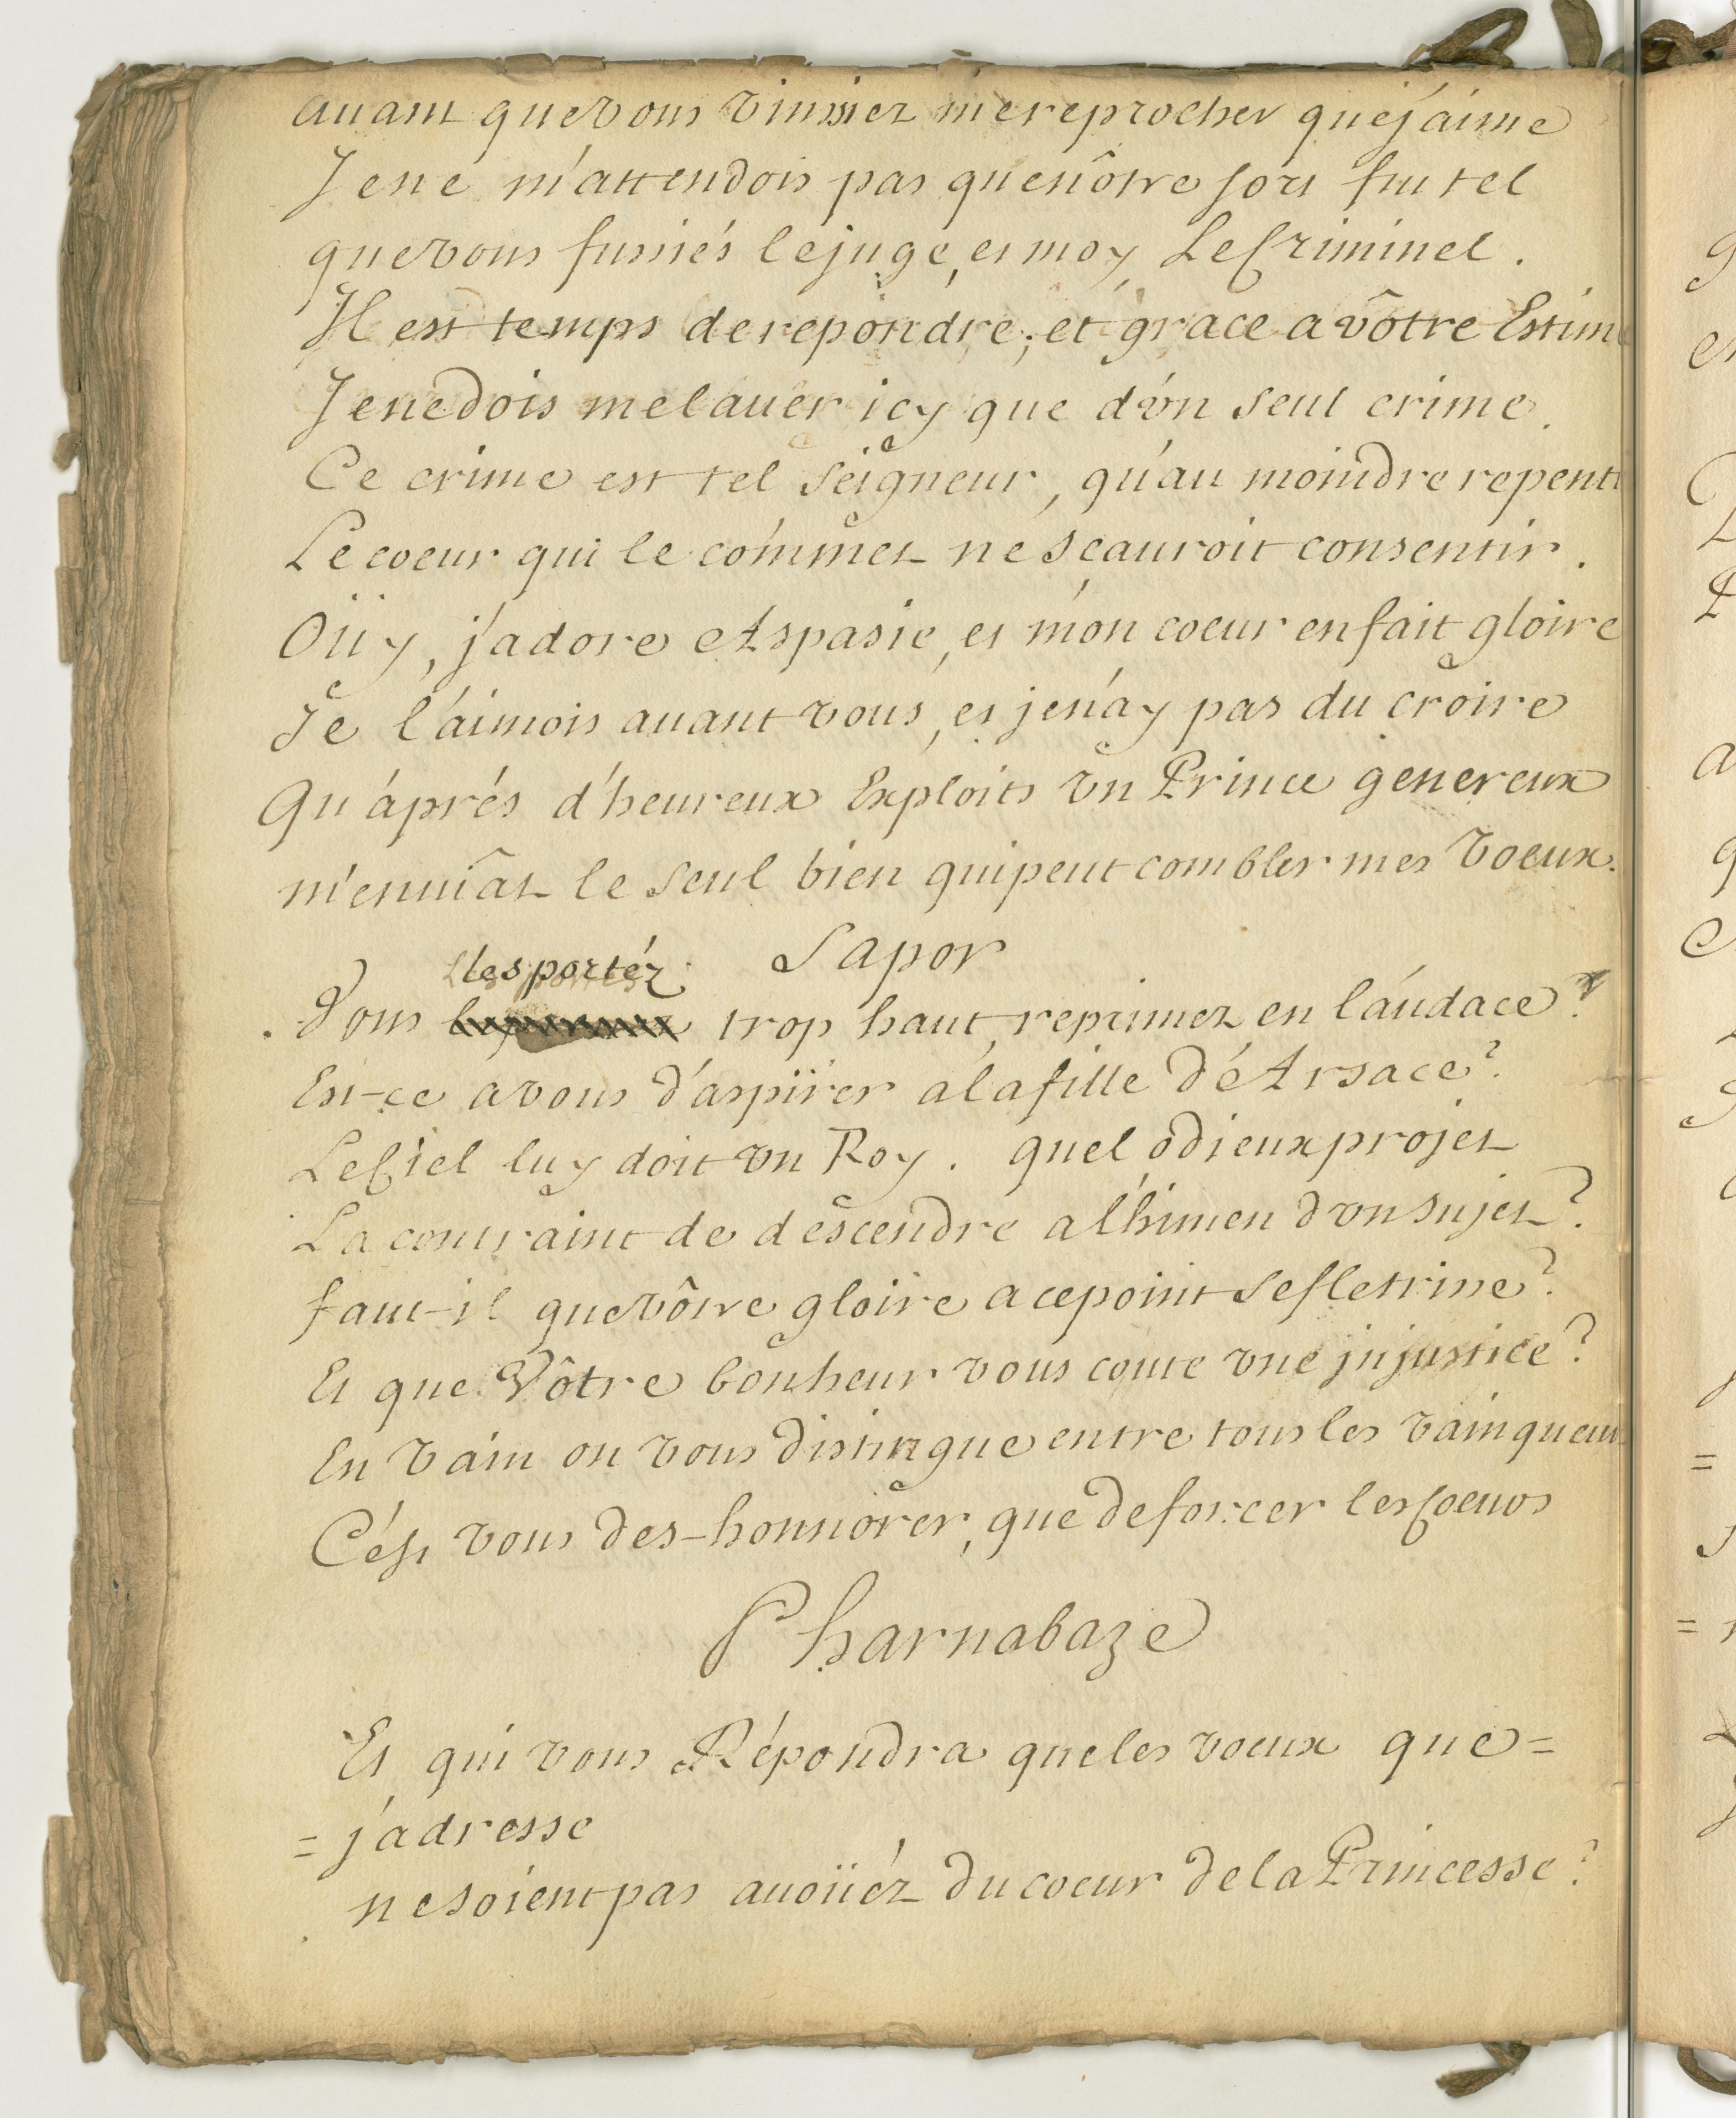 auant que vous vinssiez me reprocher que j'aime
Je ne m'attendois pas que nôtre sort fut tel
que vous fussiés le juge, et moy Le Criminel.
Il est temps de repondre; et grace a vôtre Estim
Je ne dois me lauer icy que d'vn seul crime.
Ce crime est tel seigneur, qu'au moindre repenti
Le coeur qui le commet ne sçauroit consentir.
Oüy, j'adore Aspasie, et mon coeur en fait gloire
Je l'aimois auant vous, et je n'ay pas du croire
Qu'aprés d'heureux Exploits vn Prince genereux
m'enuiât le seul bien qui peut combler mes voeux.
Sapor
les portéz
Vous trop haut, reprimez en l'audace?
Est-ce a vous d'aspirer a la fille d'Arsace?
Le Ciel luy doit vn Roy. quel odieux projet
La contraint de descendre a l'himen d'vn sujet?
faut-il que vôtre gloire a ce point se fletrisse?
Et que Vôtre bonheur vous coute vne injustice?
En vain on vous distingue entre tous les vainqueur
C'est vous des-honnorer, que de forcer les Coeurs
Pharnabaze
Et qui vous Répondra que les voeux que=
=j'adresse
ne soient pas auoüéz du coeur de la Princesse?